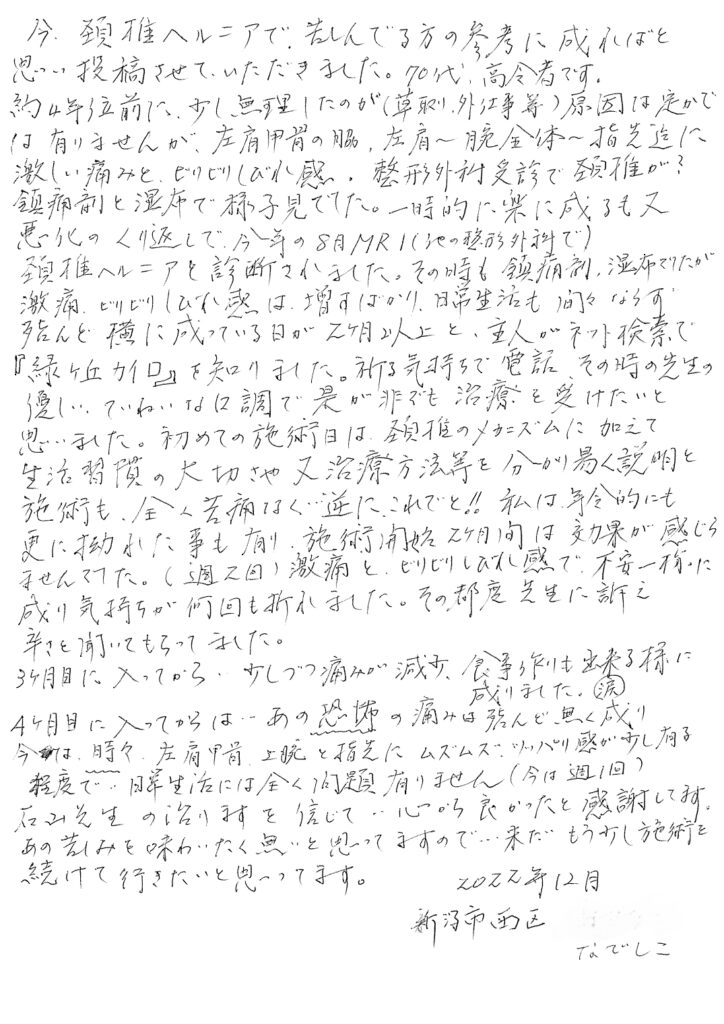 今、頚椎ヘルニアで、苦しんでる方の参考に成ればと
思い投稿させていただきました。70代、高令者です。
約4年位前に、少し無理したのが(草取り、外仕事等)原因は定かで
は有りませんが、左肩甲骨の脇、左肩〜腕全体〜指先迄に
激しい痛みと、ビリビリしびれ感。整形外科受診で頚椎が?
鎮痛剤と湿布で様子見てた。一時的に楽に成るも又
悪化のくり返しで、今年の8月MRI(他の整形外科で)
頚椎ヘルニアと診断されました。その時も鎮痛剤、湿布でたが
激痛、ビリビリしびれ感は、増すばかり、日常生活も間々ならず
殆んど横に成っている日が2ヶ月以上と、主人がネット検索で
『緑ヶ丘カイロ』を知りました。祈る気持ちで電話、その時の先生の
優しい、ていねいな口調で是が非でも治療を受けたいと
思いました。初めての施術日は、頚椎のメカニズムに加えて
生活習慣の大切さや又治療方法等を分かり易く説明と
施術も、全く苦痛はく…逆に、これでと!!私は年令的にも
更に拗れた事も有り、施術開始2ヶ月間は効果が感じら
ませんでした。(週2回)激痛と、ビリビリしびれ感で、不安一様に
成り気持ちが何回も折れました。その都度先生に訴え
辛さを聞いてもらってました。
3ヶ月目に入ってから…少しづつ痛みが減少、食事作りも出来る様に
成りました。涙
4ヶ月目に入ってからは…あの恐怖の痛みは殆んど無く成り
今は、時々、左肩甲骨、上腕と指先にムズムズ、ツッパリ感が少し有る
程度で…日常生活には全く問題有りません(今は週1回)
石山先生の治りますを信じて…心から良かったと感謝してます。
あの苦しみを味わいたく無いと思ってますので…未だもう少し施術を
続けて行きたいと思ってます。
2022年12月
新潟市西区
なでしこ